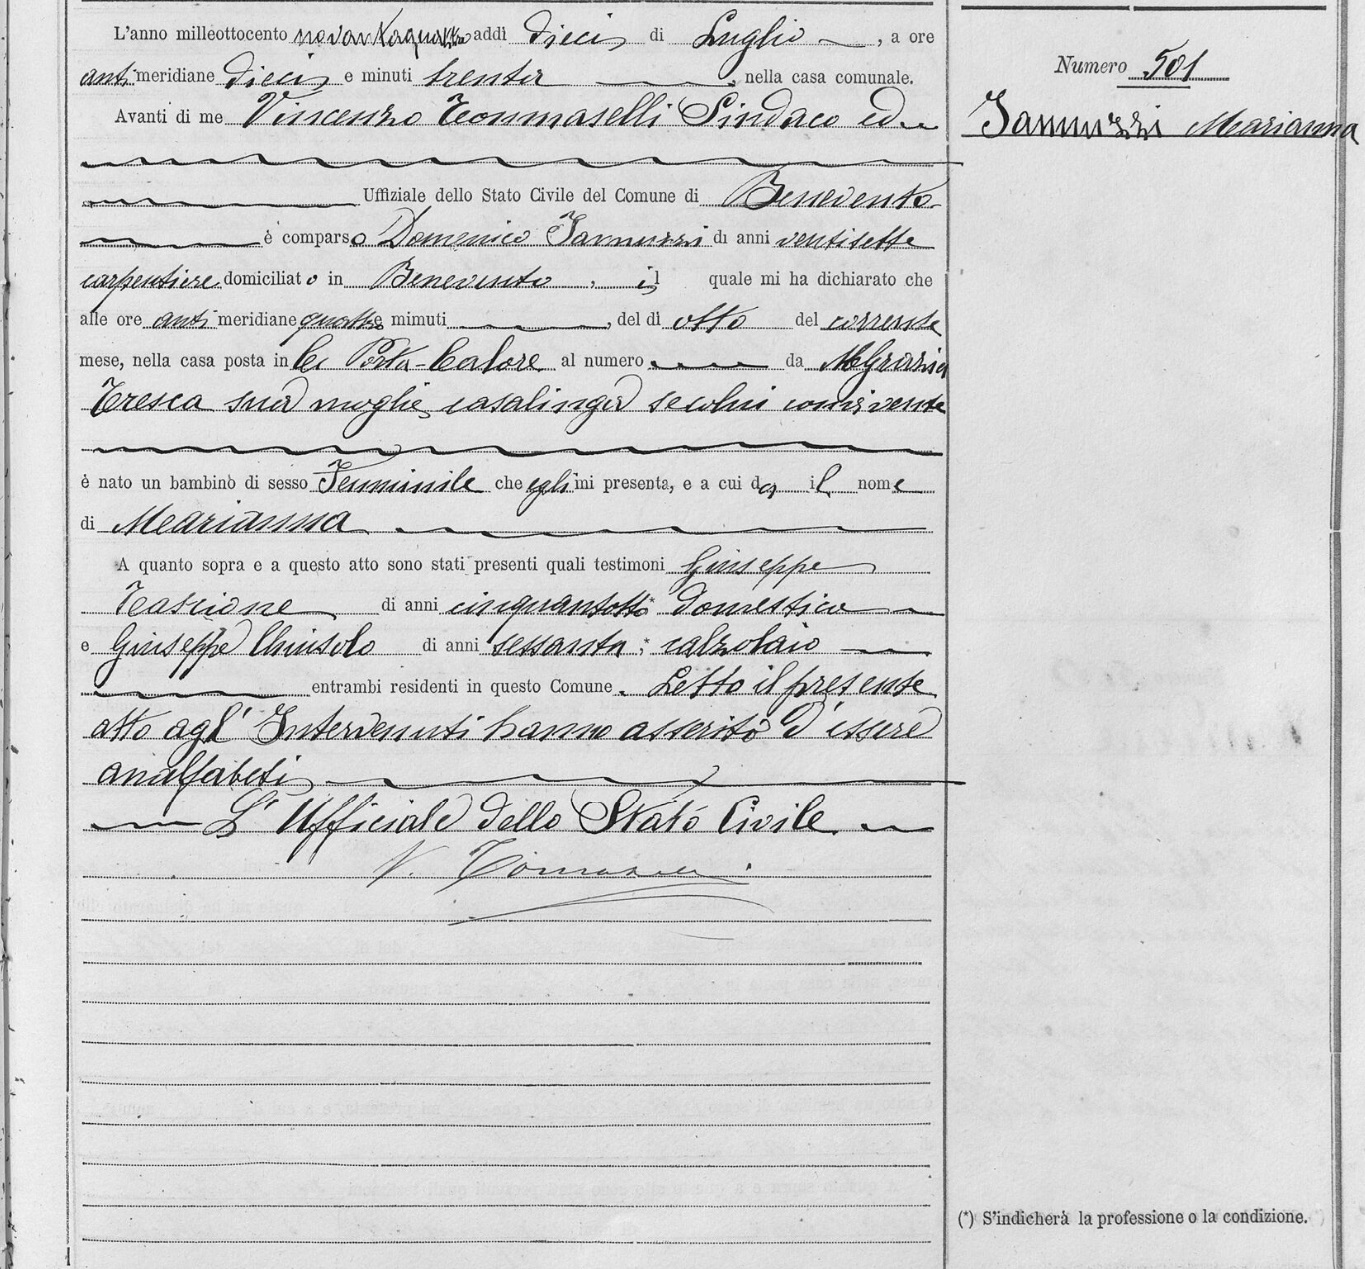 L'anno milleottocento novantaquattro addì dieci di Luglio, a ore
anti meridiane dieci e minuti trenta, nella casa comunale.
Avanti di me Vincenzo Tommaselli Sindaco ed
Uffiziale dello Stato Civile del Comune di Benevento
è comparso Domenico Iannuzzi di anni ventisette
carpentiere domiciliato in Benevento, il quale mi ha dichiarato che
alle ore anti meridiane quattro e minuti, del dì otto del corrente
mese, nella casa posta in Porta-Calore al numero da MGrazia
Tresca sua moglie, casalinga seco lui convivente
è nato un bambino di sesso Femminile che egli mi presenta, e a cui da il nome
di Marianna
A quanto sopra e a questo atto sono stati presenti quali testimoni Giuseppe
Tascione di anni cinquantotto* domestico
e Giuseppe Chiusolo di anni sessanta,* calzolaio
entrambi residenti in questo Comune. Letto il presente
atto agl' Intervenuti hanno asserito d'essere
analfabeti
L'Ufficiale dello Stato Civile
V. Tomaselli
Numero 501
Iannuzzi Marianna
(*) S'indicherà la professione o la condizione.